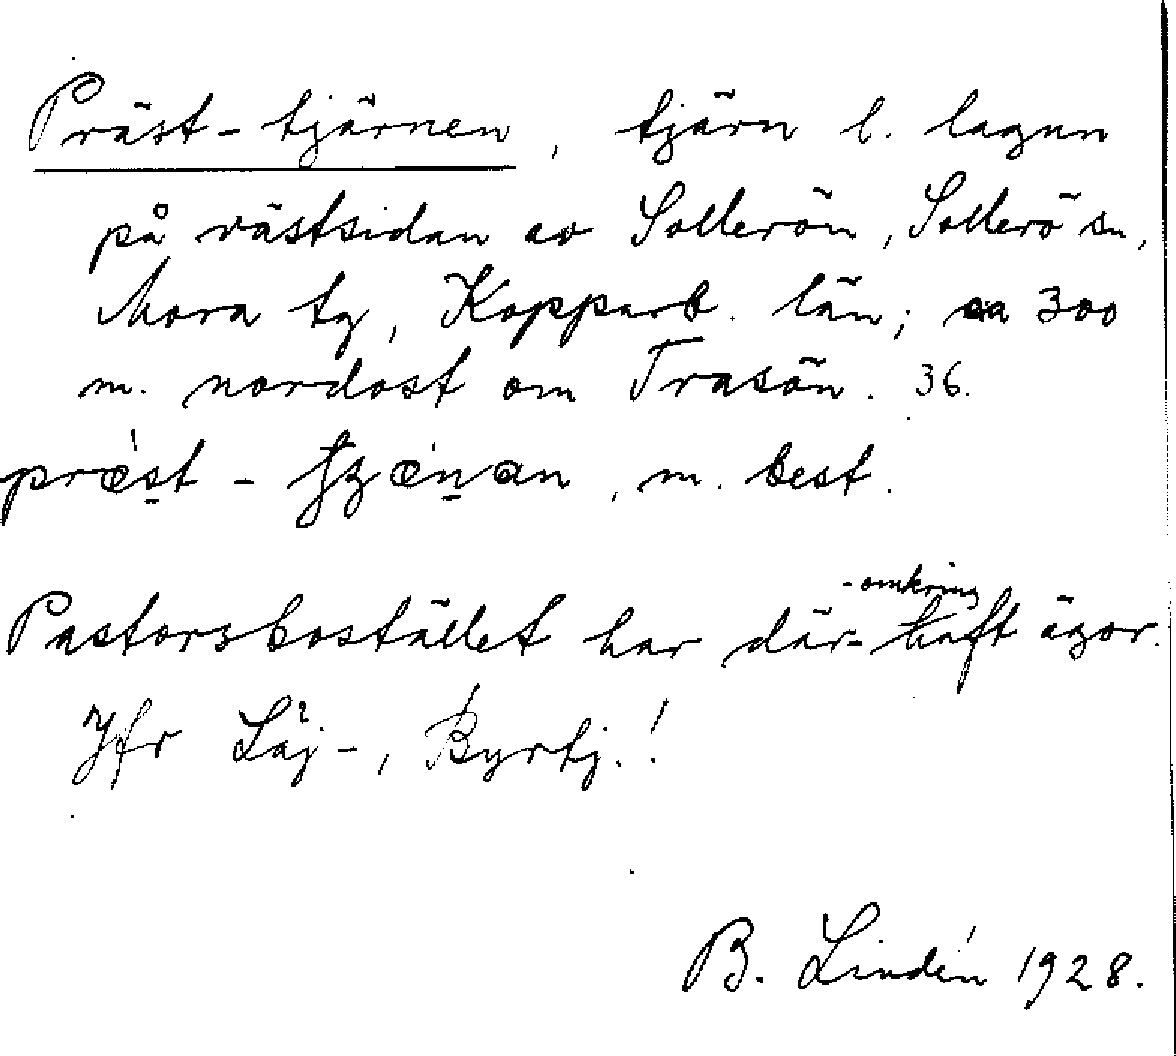 Präst-tjärnen, tjärn l. lagun
på västsidan av Sollerön, Sollerö sn,
Mora tg, Kopparb. län; ca 300
m. nordost om Trasön. 36.
præst - æn an, m. best.
-omkring
Pastorsbostället har där- haft ägor.
Jfr Låj-, Byrtj.!
B. Lindén 1928.